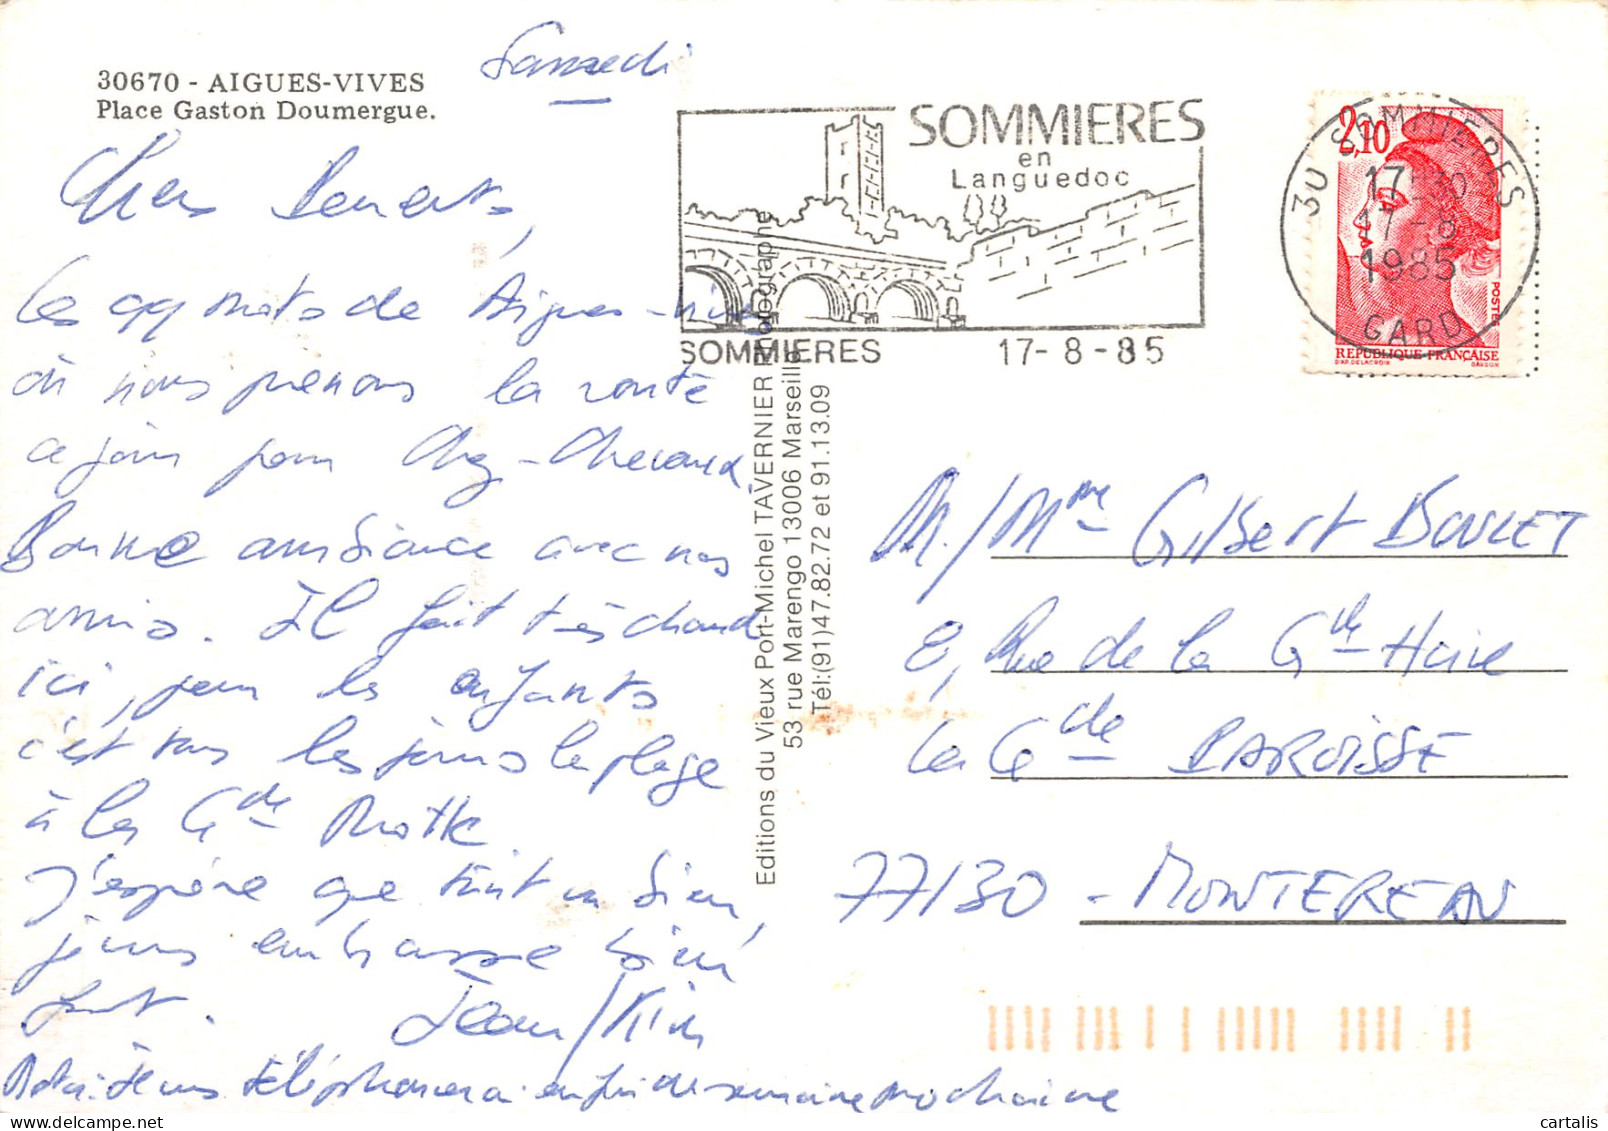 Samedi
30670 - AIGUES-VIVES
Place Gaston Doumergue.
Chers Parents,
Ces qq mots de Aigues-Vives
où nous prenons la route
ce jour pour
Bonne ambiance avec nos
amis. Il fait très chaud
ici, pour les enfants
c'est tous les jours la plage
à la Gde Motte
J'espère que tout va bien,
je vous embrasse bien
fort. Jean/
Nota: Je vous téléphonerai en fin de semaine prochaine
SOMMIERES
en
Languedoc
SOMMIERES 17-8-85
30 SOMMIERES
17H30
17-8
1985
GARD
2,10
POSTES
REPUBLIQUE-FRANÇAISE
D'AP. DELACROIX GANDON
Editions du Vieux Port-Michel TAVERNIER Photographe
53 rue Marengo 13006 Marseille
Tél:(91)47.82.72 et 91.13.09
M./Mme Gilbert BOULET
8, Rue de la Gde Haie
La Gde PAROISSE
77130 - MONTEREAU
cartalis